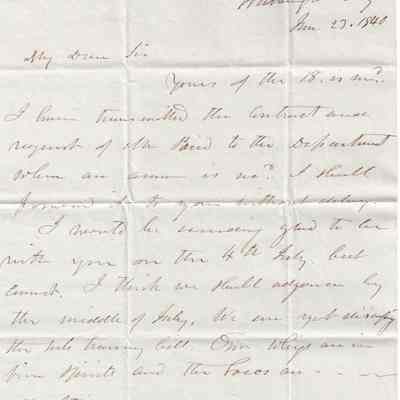 Jun. 23. 1840
My Dear Sir
Yours of the 18. is recd.
I have transmitted the Contract and
request of Mr to the Department
When an answer is recd. I shall
forward it to you without delay.
I would be exceeding glad to be
with you on the 4th July but
cannot. I think we shall adjourn by
the middle of July. We are yet discussing
the sub treasury bill. Our Whigs are in
fine Spirits and the Locos are